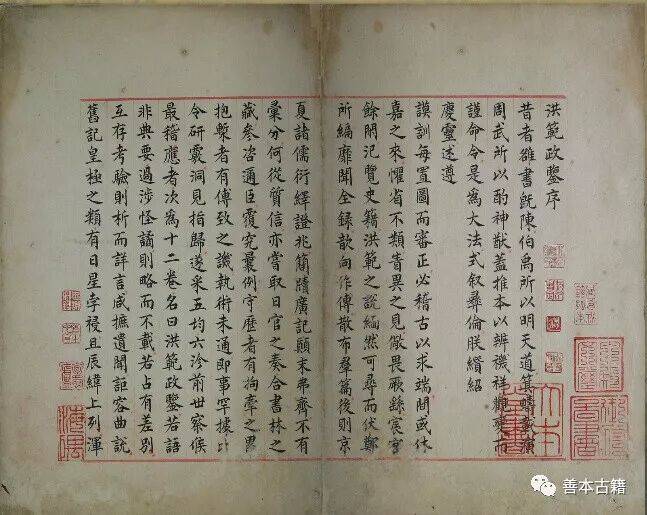 洪範政鑒序
昔者雒書既陳伯禹所以明天道箕疇載演
周武所以酌神猷蓋推本以辨機祥觀變而
謹命令是為大法式叙彝倫朕纘紹
慶靈述遵
謨訓每置圖而審正必稽古以求端問或休
嘉之來懼省不類眚異之見儆畏厥繇宸宮
餘閒汎覽史籍洪範之說緬然可尋而伏鄭
所編靡聞全録歆向作傳散布羣篇後則京
夏諸儒衍繹證兆簡牘廣記顛末弗齊不有
彙分何從質信亦嘗取日官之奏合書林之
藏參咨通臣覆究曩例守歷者有拘牽之畏
抱槧者有傅致之譏執術未通即事罕據比
令研覈洞見指歸遂采五均六沴前世察候
最稽應者次為十二卷名曰洪範政鑒若語
非典要過涉怪譎則略而不載若占有差別
互存考驗則析而詳言咸摭遺聞詎容曲說
舊記皇極之類有日星孛祲且辰緯上列渾
善本古籍